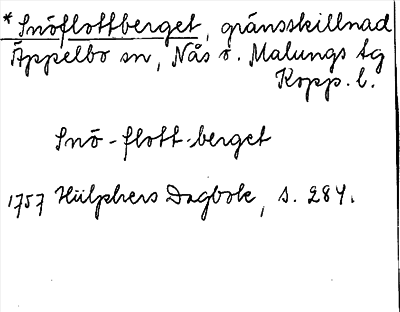 * Snöflottberget, gränsskillnad
Äppelbo sn, Nås o. Malungs tg
Kopp. l.
Snö-flott-berget
1757 Hülphers Dagbok, s. 284.